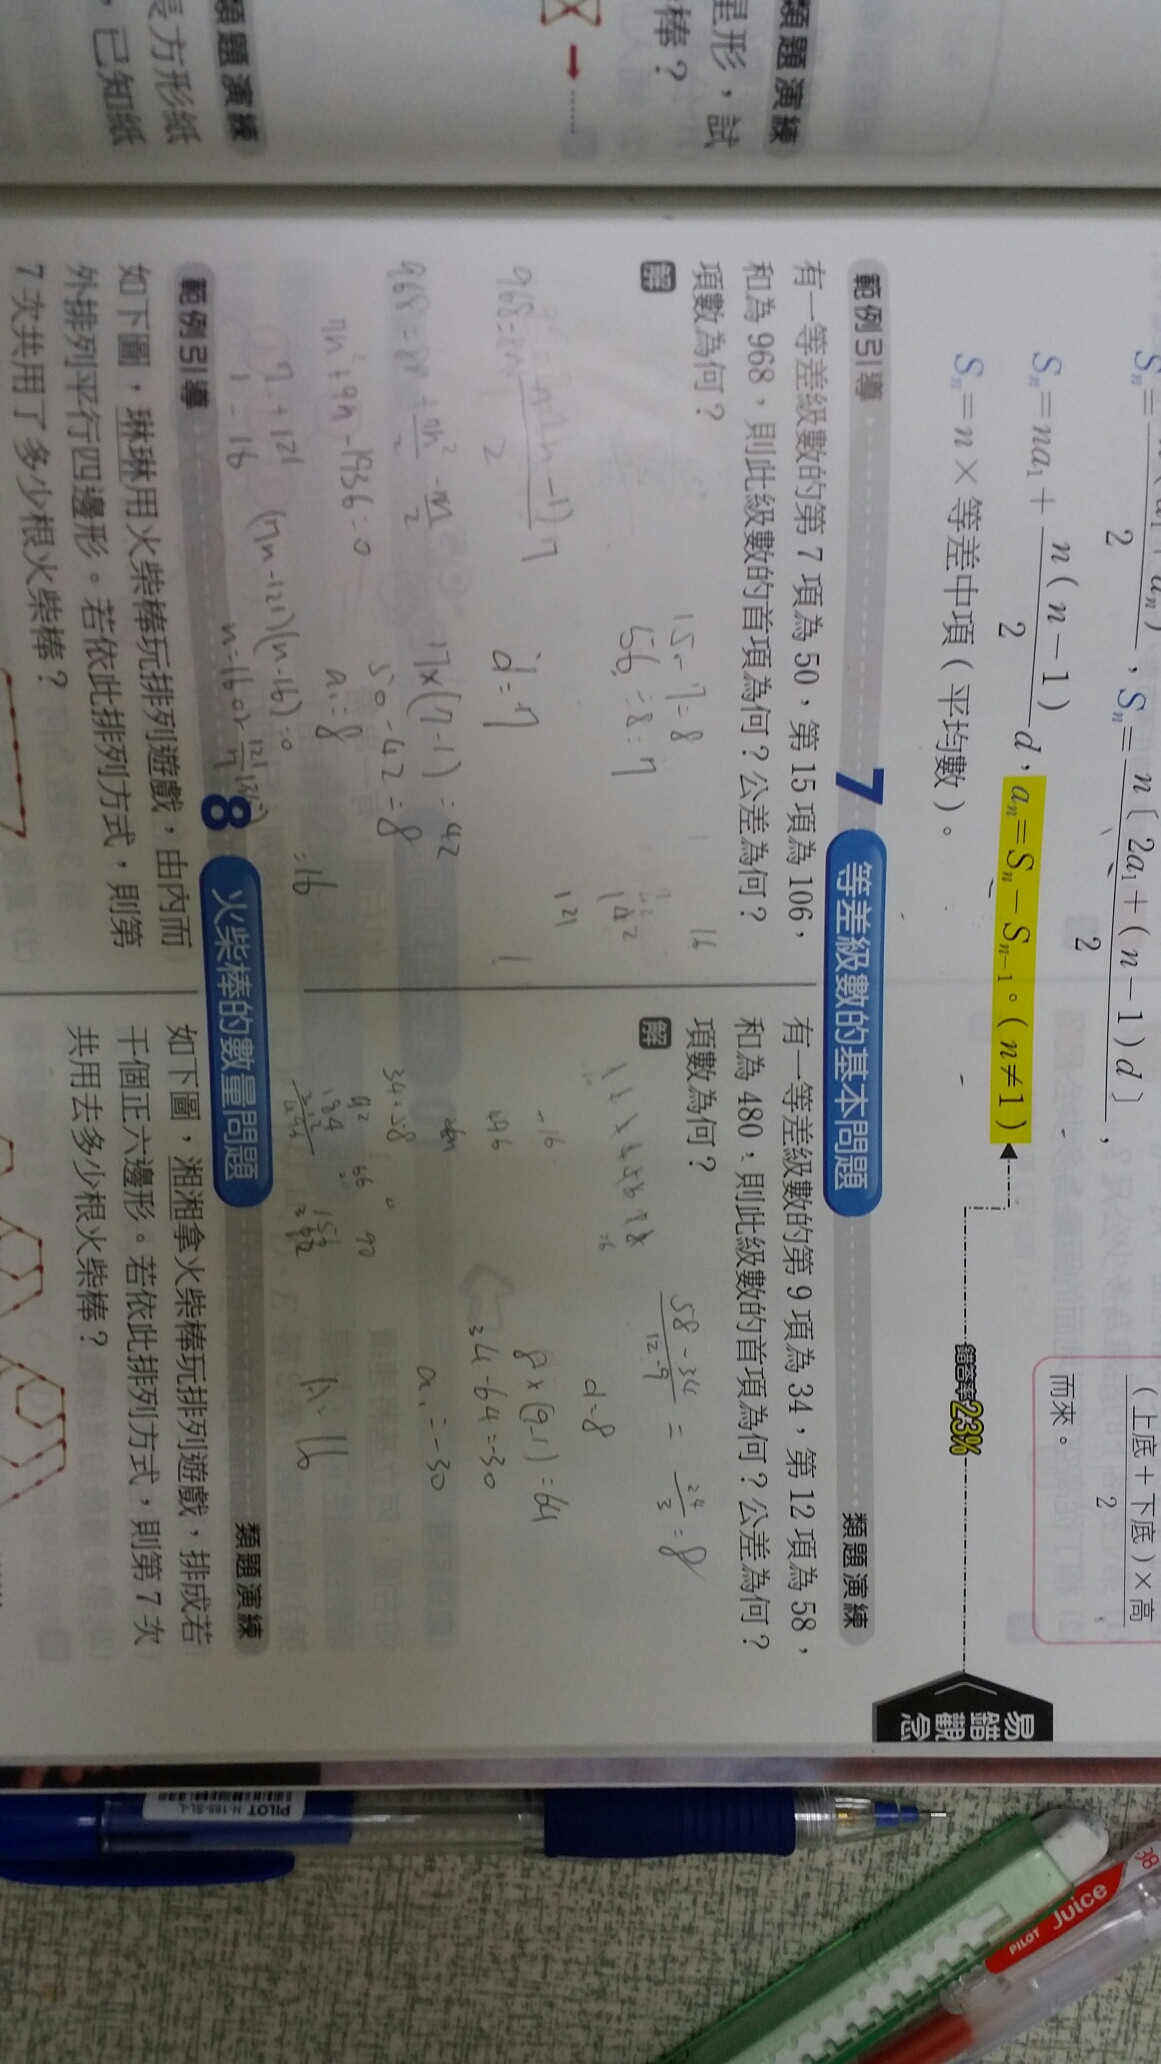 類題演練
星形，試
棒？
類題演練
長方形紙
，已知紙
2
, Sn=
n〔2a1+(n-1)d〕
2
,
Sn=na1+
n(n-1)
2
d，an=Sn-Sn-1。(n≠1)
Sn=n×等差中項(平均數)。
(上底+下底)×高
2
而來。
錯答率23%
易錯觀念
範例引導
7 等差級數的基本問題
類題演練
有一等差級數的第7項為50，第15項為106，
和為968，則此級數的首項為何？公差為何？
項數為何？
解
15-7=8
56÷8=7
d=7
17×(7-1)=42
50-42=8
a1=8
7n²+9n-1936=0
(7n-121)(n-16)=0
7+121
1-16
=16
16
121
有一等差級數的第9項為34，第12項為58，
和為480，則此級數的首項為何？公差為何？
項數為何？
解
58-34
12-9
=
24
3
=8
d=8
8×(9-1)=64
34-64=-30
a1=-30
n=16
-16
496
範例引導
8 火柴棒的數量問題
類題演練
如下圖，琳琳用火柴棒玩排列遊戲，由內而
外排列平行四邊形。若依此排列方式，則第
7次共用了多少根火柴棒？
如下圖，湘湘拿火柴棒玩排列遊戲，排成若
干個正六邊形。若依此排列方式，則第7次
共用去多少根火柴棒？
PILOT
PILOT Juice
38